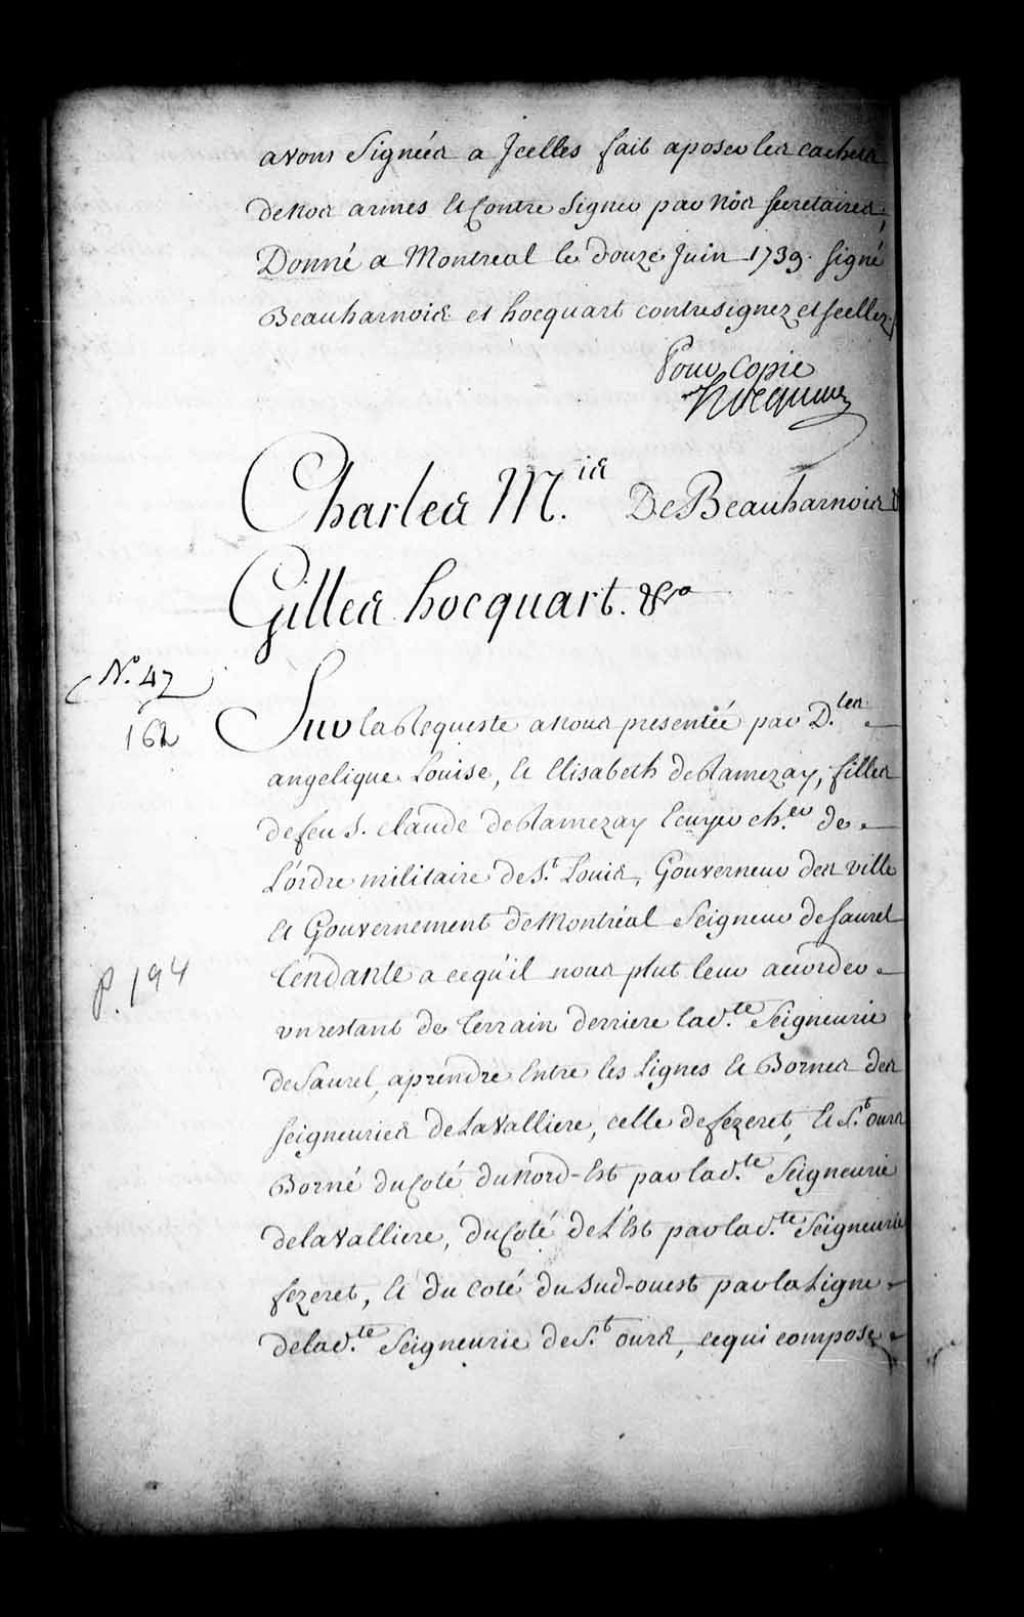 avons Signées a Jcelles fait aposer les cachets
de nos armes et Contre Signer par nos secretaires,
Donné a Montreal le douze Juin 1739. signé
Beauharnois et hocquart contresignez et scellez./.
Pour Copie
Hocquart
Charles M.is De Beauharnois &
Gilles hocquart. &ra
N.o 47
162
Sur la Requeste a nous presentée par D.lles
angelique Louise, et Elisabeth de Ramezay, filles
de feu S. claude de Ramezay Ecuyer ch.er de
L'ordre militaire de S.t Louis, Gouverneur des ville
et Gouvernement de Montréal Seigneur de Saurel
P. 194
Tendante a cequ'il nous plut leur accorder
un restant de Terrain derriere lad.te Seigneurie
de Saurel, aprendre Entre les Lignes et Bornes des
seigneuries de La Valliere, celle de fezeret, et S.t ours
Borné du Coté du nord-Est par lad.te Seigneurie
de la Valliere, du Coté de L'Est par lad.te Seigneurie
fezeret, et du Coté du Sud-ouest par la Ligne
de lad.te Seigneurie de S.t ours, cequi compose